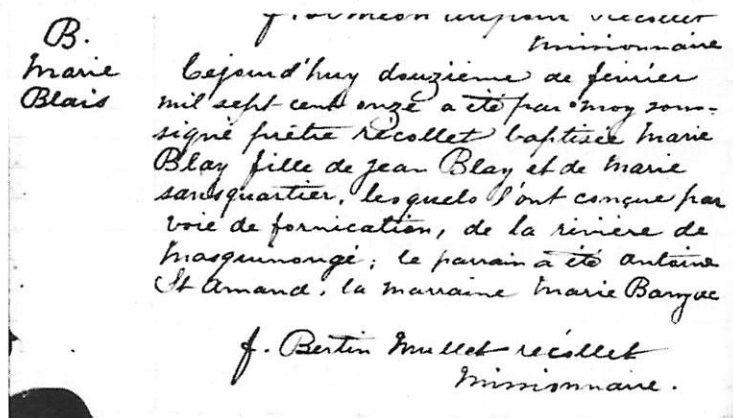 f. Siméon Dupont récollet
missionnaire
B.
Marie
Blais
Cejourd'huy douzieme de février
mil sept cent onze a été par moy sous-
signé prêtre récollet baptisée Marie
Blay fille de Jean Blay et de Marie
sansquartier, lesquels l'ont conçue par
voie de fornication, de la riviere de
Masquinongé; le parrain a été Antoine
St Amand, la marraine Marie
f. Bertin Mullet récollet
Missionnaire.